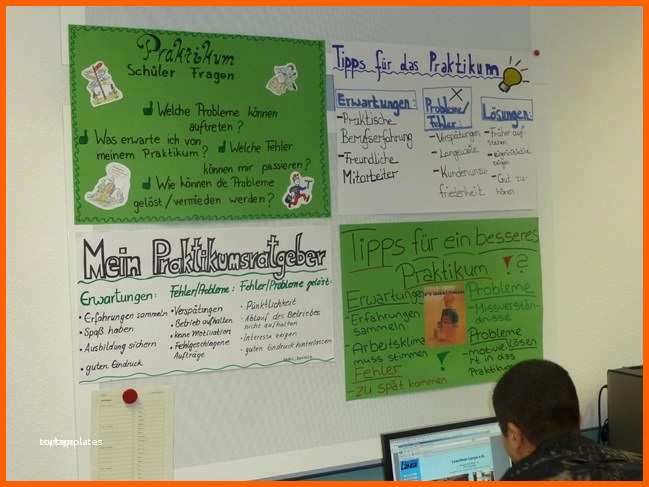 Praktikum
Schüler Fragen
Welche Probleme können
auftreten?
Was erwarte ich von
meinem Praktikum?
Welche Fehler
können mir passeren?
Wie können die Probleme
gelöst/vermieden werden?
Tipps für das Praktikum
Erwartungen:
-Praktische
Berufserfahrung
-Freundliche
Mitarbeiter
Probleme/
Fehler:
-Verspätungen
-Langeweile
-Kundenunzu-
friedenheit
Lösungen:
-Früher auf
stehen
zeigen
-Gut zu
hören
Mein Praktikumsratgeber
Erwartungen:
• Erfahrungen sammeln
• Spaß haben
• Ausbildung sichern
• guten Eindruck
Fehler/Probleme:
• Verspätungen
• Betrieb aufhalten
• keine Motivation
• Fehlgeschlagene
Aufträge
Fehler/Probleme gelöst:
• Pünktlichkeit
• Ablauf des Betriebes
nicht aufhalten
• Interesse zeigen
• guten Eindruck hinterlassen
Tipps für ein besseres
Praktikum
Erwartungen
-Erfahrungen
sammeln
-Arbeitsklima
muss stimmen
Fehler
-zu spät kommen
Probleme
-Missverstän-
dnisse
Probleme
lösen
-motivier
t in das
Praktikum